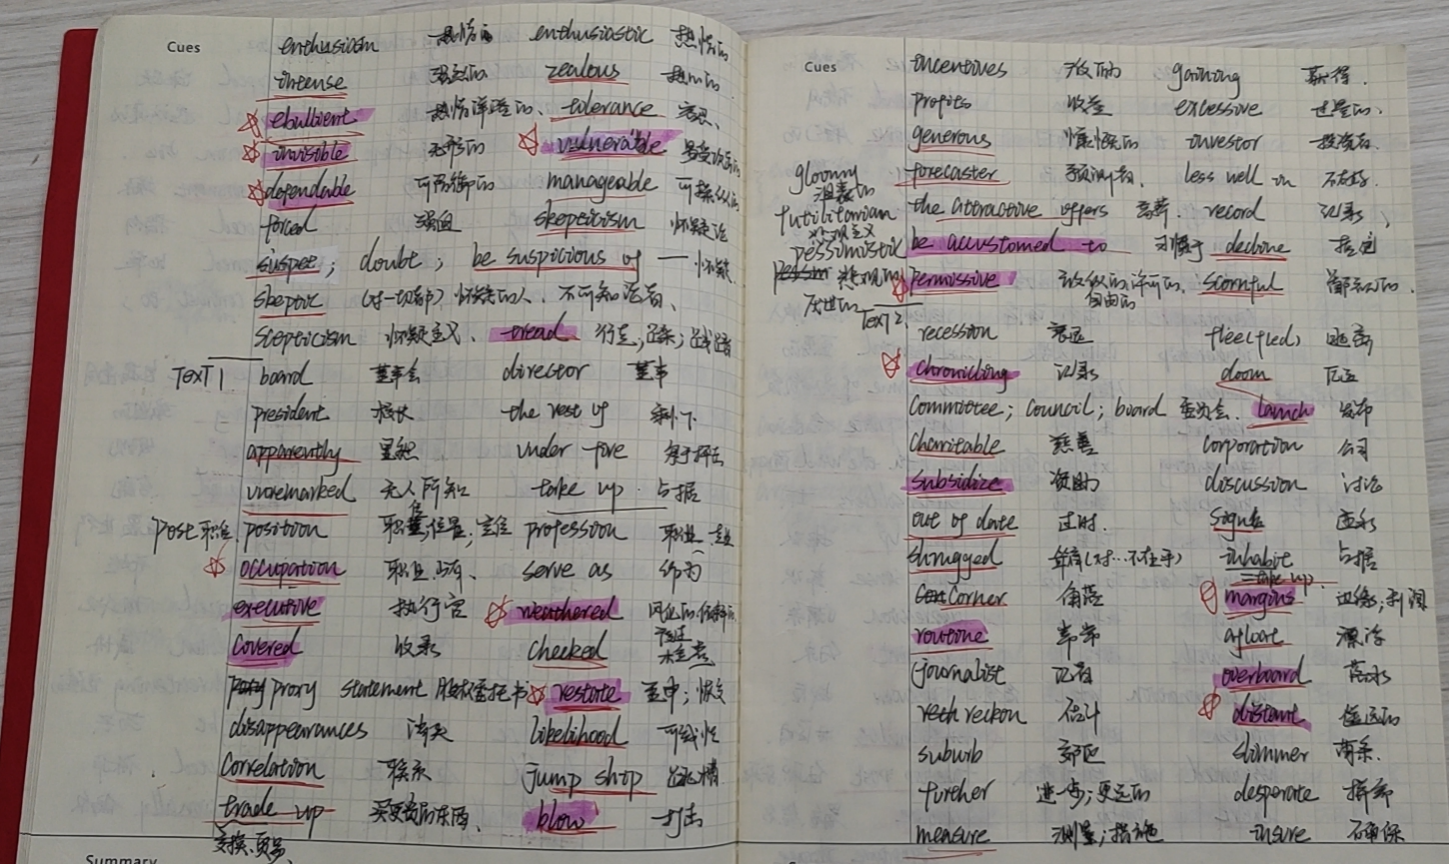 Cues
enthusiasm 热情 enthusiastic 热情的
intense 强烈的 zealous 热心的
ebullient 热情洋溢的 tolerance 容忍
invisible 无形的 vulnerable 易受攻击的
dependable 可依赖的 manageable 可操纵的
forced 强迫 skepticism 怀疑论
suspect; doubt; be suspicious of — 怀疑
skeptic (对一切都)怀疑的人、不可知论者、
scepticism 怀疑主义、tread 行走;踩;践踏
TexT 1 board 董事会 director 董事
president 校长 the rest of 剩下
apparently 显然 under fire
unremarked 无人所知 take up 占据
post 职位 position 职位;位置; profession 职业
occupation 职业 serve as 作为
executive 执行官 weathered 风化的
covered 收录 checked
proxy statement 股权委托书 restate 重申;恢复
disappearances 消失 likelihood 可能性
correlation 联系 jump ship 跳槽
trade up 买更贵的东西、 blow 打击
交换、贸易、
Summary
Cues
incentives gaining 获得.
profits 收益 excessive 过量的.
generous 慷慨的 investor 投资者.
gloomy forecaster 预测者、 less well on
the attractive offers 高薪. record 记录
pessimistic be accustomed to 习惯于 decline
悲观的 permissive 放纵的、许可的、自由的 scornful 鄙视的.
厌世的
TexT 2.
recession 衰退 flee(fled) 逃离
chronicling 记录 doom 厄运
committee; council; board 委员会. launch 发布
charitable 慈善 corporation 公司
subsidize 资助 discussion 讨论
out of date 过时.
shrugged 耸肩(对…不在乎) inhabit 占据
= take up
corner 角落 margins 边缘;利润
routine 常常 afloat 漂浮
journalist 记者 overboard 落水
reckon 估计 distant 遥远的
suburb 郊区 slimmer
further 进一步;更远的 desperate
measure 测量;措施 insure 确保